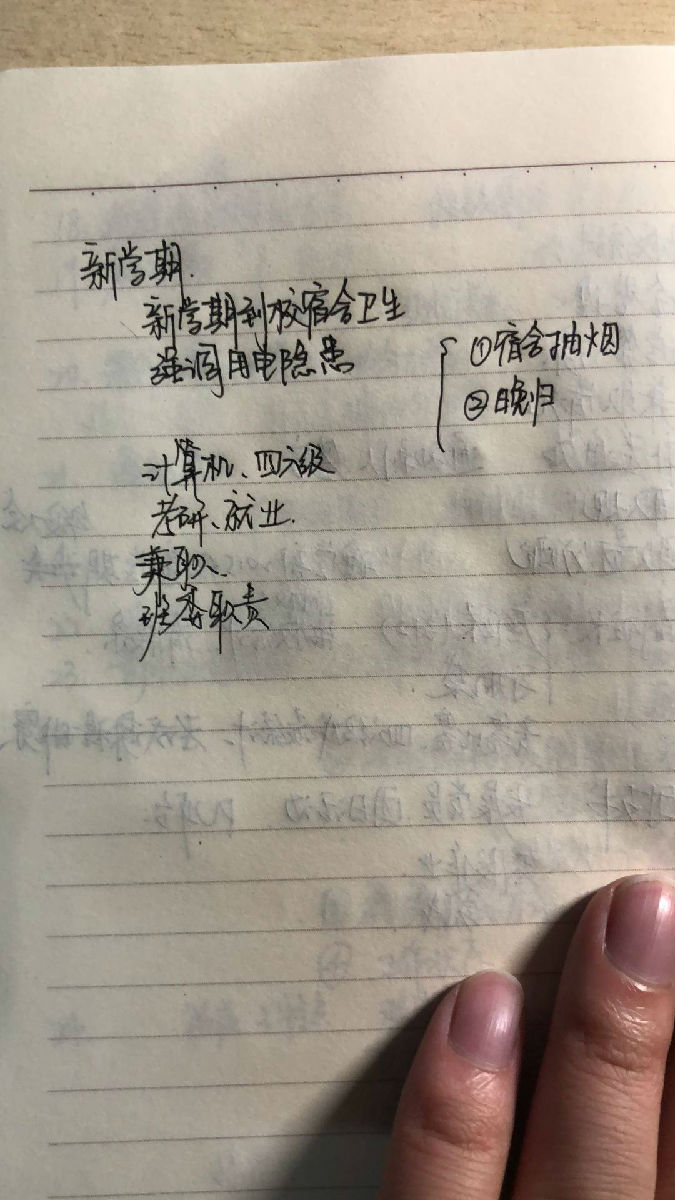 新学期.
新学期到校宿舍卫生
强调用电隐患
①宿舍抽烟
②晚归
计算机、四六级
考研、就业.
兼职、
班委职责